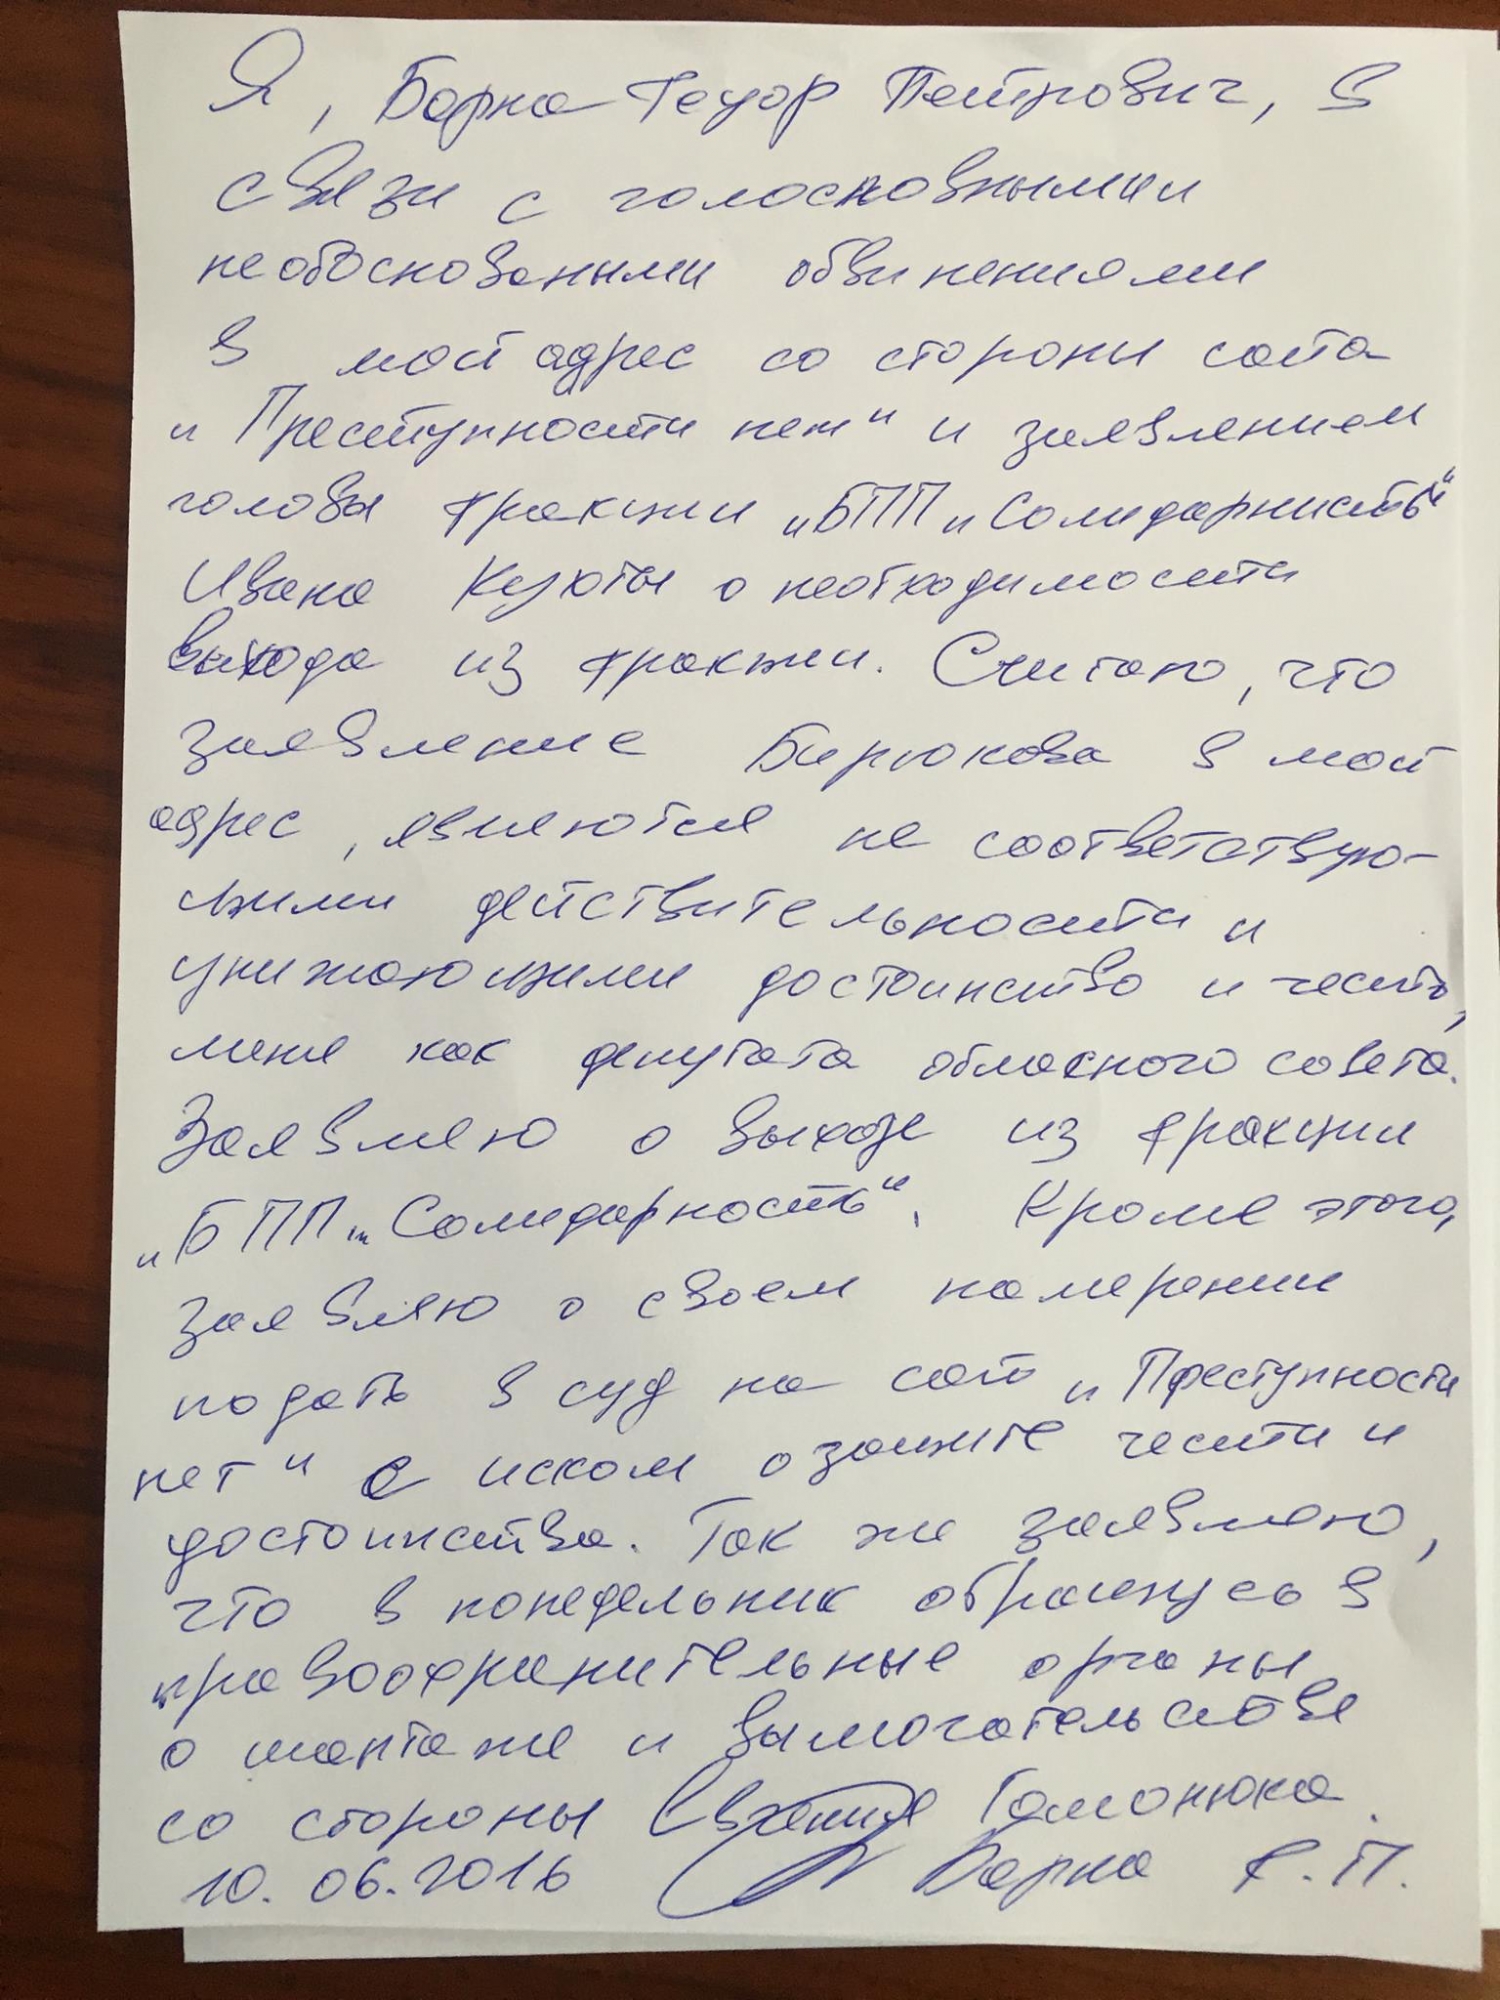 Я, Барна Федор Петрович, в
связи с голословными
необосноваными обвинениями
в мой адрес со стороны сайта
"Преступности нет" и заявлением
головы фракции "БПП "Солидарнисть"
Ивана Кухты о необходимости
выхода из фракции. Считаю, что
заявление Бирюкова в мой
адрес, являются не соответствую-
щими действительности и
унижающими достоинство и честь,
меня как депутата обласного совета.
Заявляю о выходе из фракции
"БПП "Солидарность". Кроме этого,
заявляю о своем намерении
подать в суд на сайт "Преступности
нет" с иском о защите чести и
достоинства. Так же заявляю,
что в понедельник обращусь в
правоохранительные органы
о шантаже и вымогательстве
со стороны Евгения Гамонюка.
10.06.2016 Барна Ф.П.